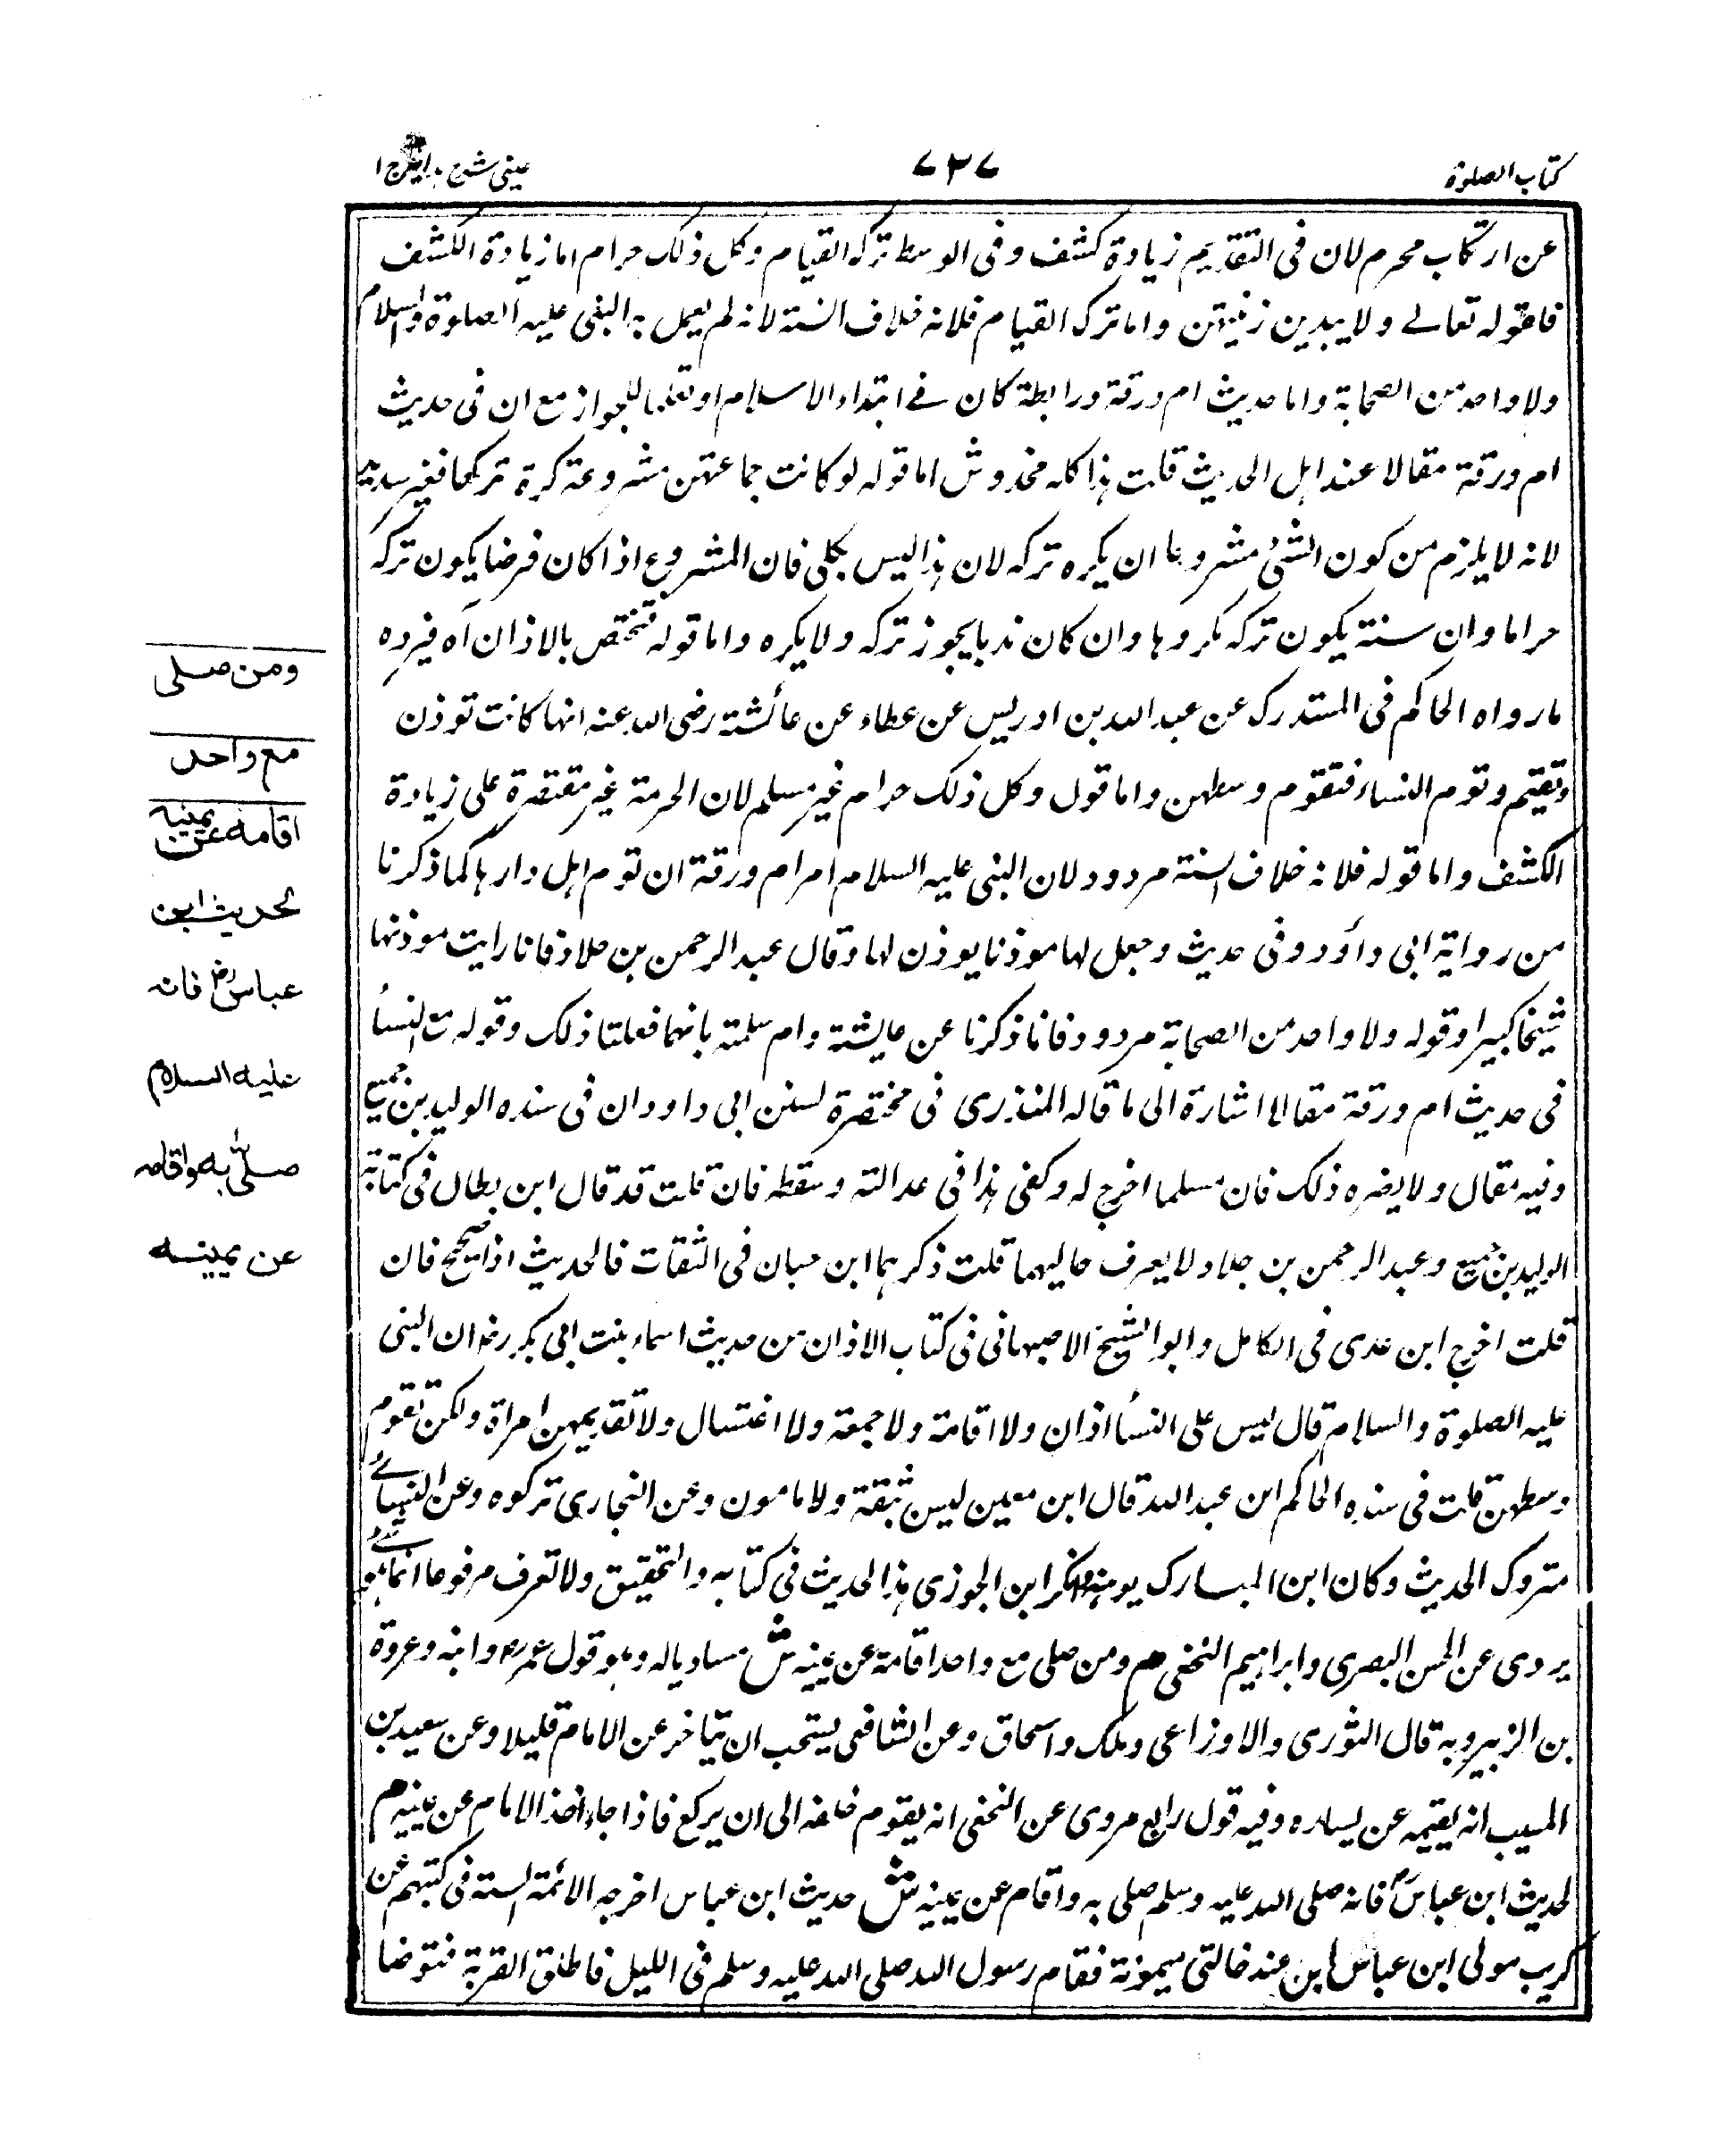 كتاب الصلوة
٧٣٧
عينى شرح ج ١
عن ارتكاب محرم لان فى التقديم زيادة كشف وفى الوسط ترك القيام وكل ذلك حرام اما زيادة الكشف
فلقوله تعالے ولا يبدين زينتهن واما ترك القيام فلانه خلاف السنة لانه لم يعمل به النبى عليه الصلوة والسلام
ولا واحد من الصحابة واما حديث ام ورقة ورابطة كان فے ابتداء الاسلام او تعليما للجواز مع ان فى حديث
ام ورقة مقالا عند اهل الحديث قلت هذا كله مخدوش اما قوله لو كانت جماعتهن مشروعة كره تركها فغير سديد
لانه لا يلزم من كون الشئ مشروعا ان يكره تركه لان هذا ليس بكلى فان المشروع اذا كان فرضا يكون تركه
حراما وان سنة يكون تركه مكروها وان كان ندبا يجوز تركه ولا يكره واما قوله تختص بالاذان آه فيرده
ما رواه الحاكم فى المستدرك عن عبد الله بن ادريس عن عطاء عن عائشة رضى الله عنه انها كانت توذن
وتقيم وتوم النساء فتقوم وسطهن واما قول وكل ذلك حرام غير مسلم لان الحرمة غير مقتصرة على زيادة
الكشف واما قوله فلانه خلاف السنة مردود لان النبى عليه السلام امر ام ورقة ان توم اهل دارها كما ذكرنا
من رواية ابى داؤد وفى حديث وجعل لها موذنا يوذن لها وقال عبد الرحمن بن خلاد فانا رايت موذنها
شيخا كبيرا وقوله ولا واحد من الصحابة مردود فانا ذكرنا عن عايشة وام سلمة بانهما فعلتا ذلك وقوله مع النسأ
فى حديث ام ورقة مقالا اشارة الى ما قاله المنذرى فى مختصرة لسنن ابى داود ان فى سنده الوليد بن جميع
وفيه مقال ولا يضره ذلك فان مسلما اخرج له وكفى هذا فى عدالته وسقطه فان قلت قد قال ابن بطال فى كتابه
الوليد بن جميع وعبد الرحمن بن خلاد لا يعرف حاليهما قلت ذكرهما ابن حبان فى الثقات فالحديث اذا صحيح فان
قلت اخرج ابن عدى فى الكامل وابو الشيخ الاصبهانى فى كتاب الاذان من حديث اسماء بنت ابى بكر رضہ ان النبى
عليه الصلوة والسلام قال ليس على النسأ اذان ولا اقامة ولا جمعة ولا اغتسال ولا تقديمهن امراة ولكن تقوم
وسطهن قلت فى سنده الحاكم ابن عبد الله قال ابن معين ليس بثقة ولا مامون وعن البخارى تركوه وعن النسائے
متروك الحديث وكان ابن المبارك يوهنه وانكر ابن الجوزى هذا الحديث فى كتابه والتحقيق ولا تعرف مرفوعا انما هو
يروى عن الحسن البصرى وابراهيم النخعى م ومن صلى مع واحد اقامه عن يمينه ش مساويا له وهو قول عمر رضہ وابنه وعروة
بن الزبير وبه قال الثورى والاوزاعى وملك واسحاق وعن الشافعى يستحب ان يتاخر عن الامام قليلا وعن سعيد بن
المسيب انه يقيمه عن يساره وفيه قول رابع مروى عن النخعى انه يقوم خلفه الى ان يركع فاذا جاء احد والا قام عن يمينه م
لحديث ابن عباس فانه صلى الله عليه وسلم صلى به واقام عن يمينه ش حديث ابن عباس اخرجه الائمة الستة فى كتبهم عن
كريب مولى ابن عباس بن عند خالتى ميمونة فقام رسول الله صلى الله عليه وسلم فى الليل فاطلق القربة فتوضا
ومن صلى
مع واحد
اقامه عن يمينه
لحديث ابن
عباس رضہ فانه
عليه السلام
صلى به واقامه
عن يمينه